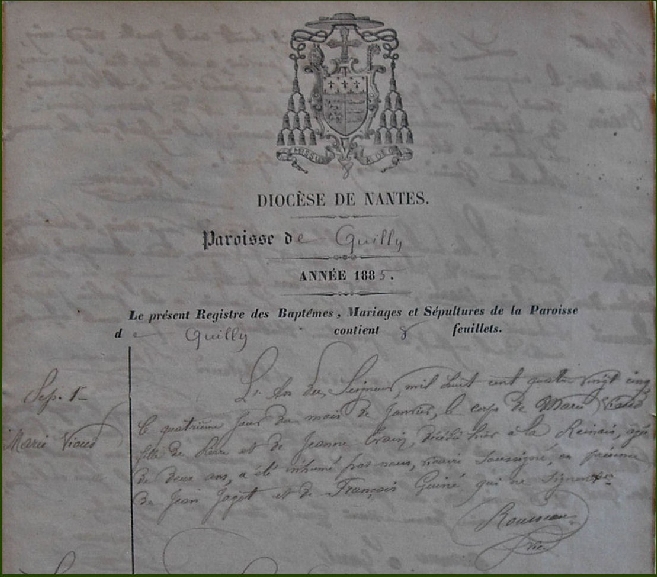 DIOCÈSE DE NANTES.
Paroisse de Quilly
ANNÉE 1885.
Le présent Registre des Baptêmes, Mariages et Sépultures de la Paroisse
de Quilly contient 8 feuillets.
Sep. 1
Marie Viaud
L'An du Seigneur, mil huit cent quatre vingt cinq
le quatrième jour du mois de Janvier, le corps de Marie Viaud
fille de Pierre et de Jeanne décédée hier à la
de deux ans, a été inhumé par nous, soussigné, en présence
de Jean Jagot et de François qui ne signent
Rousseau